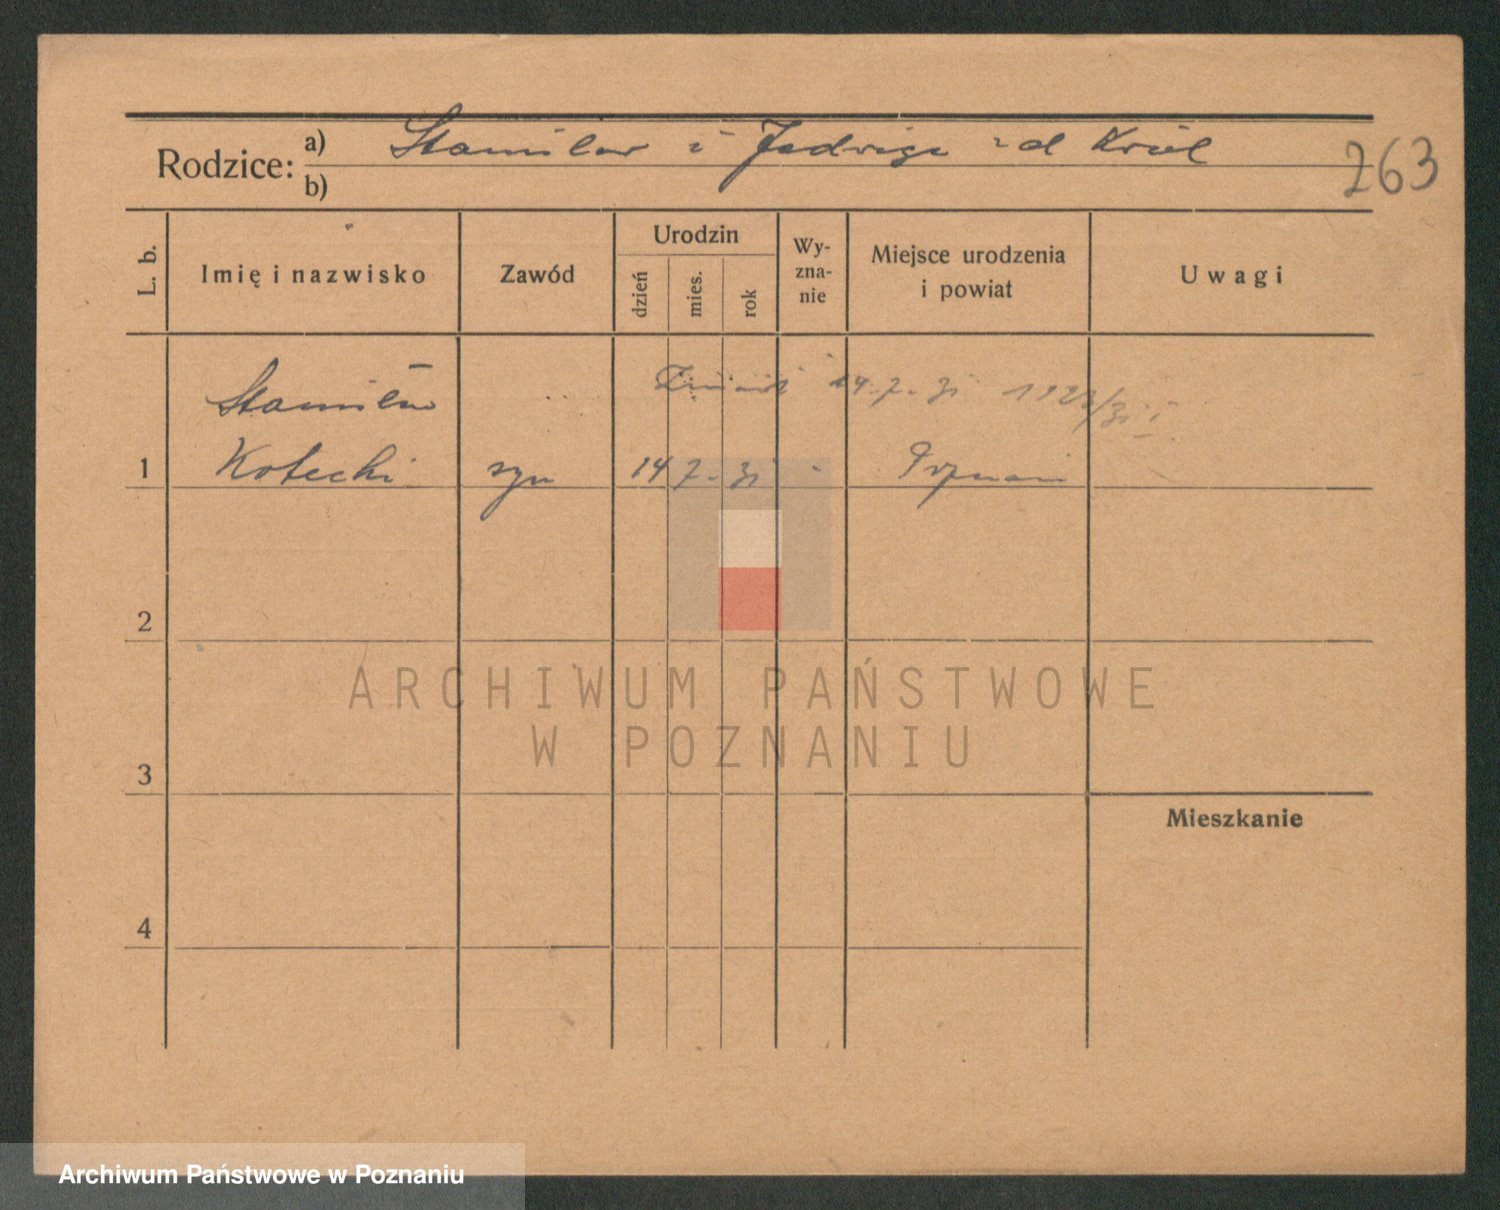 Rodzice: a) Stanisław i Jadwiga zd Król
b)
263
L. b.
Imię i nazwisko
Zawód
Urodzin
dzień
mies.
rok
Wy-
zna-
nie
Miejsce urodzenia
i powiat
Uwagi
14.7.31
Stanisław
1 Kotecki syn 14 7. 31 - Poznań
2
3
4
Mieszkanie
ARCHIWUM PAŃSTWOWE
W POZNANIU
Archiwum Państwowe w Poznaniu